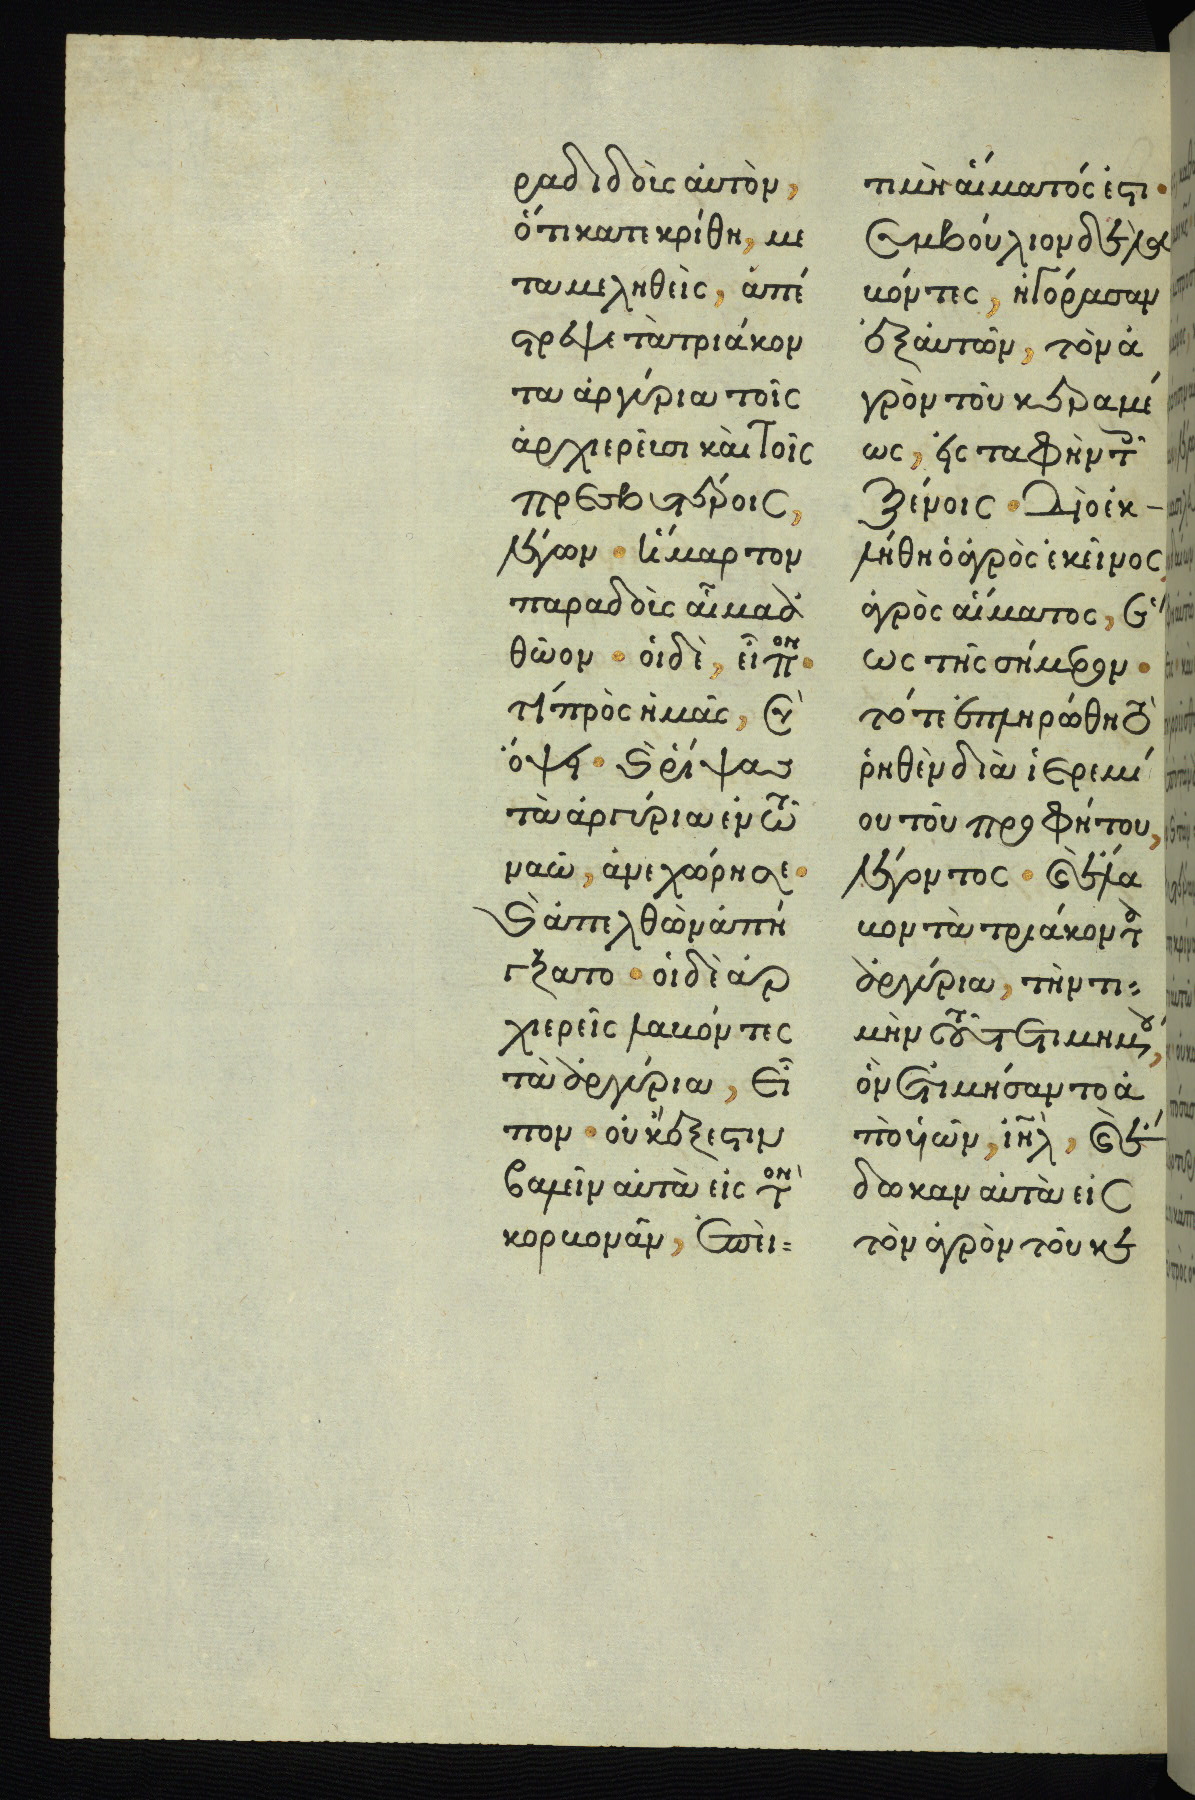 ραδιδοὺς αὐτὸν,
ὅτι κατεκρίθη, με
ταμεληθεὶς, ἀπέ
στρεψε τὰ τριάκον
τα ἀργύρια τοῖς
ἀρχιερεῦσι καὶ τοῖς
πρεσβυτέροις,
λέγων · ἥμαρτον
παραδοὺς αἷμα ἀ
θῶον · οἱ δὲ, εἶπον ·
τί πρὸς ἡμᾶς, σὺ
ὄψει · καὶ ῥίψας
τὰ ἀργύρια ἐν τῶ
ναῶ, ἀνεχώρησε ·
καὶ ἀπελθὼν ἀπή
γξατο · οἱ δὲ ἀρ
χιερεῖς λαβόντες
τὰ ἀργύρια, εἶ
πον · οὐκ ἔξεστιν
βαλεῖν αὐτὰ εἰς τὸν
κορβονᾶν, ἐπεὶ
τιμὴ αἵματός ἐστι ·
συμβούλιον δὲ λα
βόντες, ἠγόρασαν
ἐξ αὐτῶν, τὸν ἀ
γρὸν τοῦ κεραμέ
ως, εἰς ταφὴν τοῖς
ξένοις · διὸ ἐκ
λήθη ὁ ἀγρὸς ἐκεῖνος,
ἀγρὸς αἵματος, ἕ
ως τῆς σήμερον ·
τότε ἐπληρώθη τὸ
ῥηθὲν διὰ ἱερεμί
ου τοῦ προφήτου,
λέγοντος · καὶ ἔλα
βον τὰ τριάκοντα
ἀργύρια, τὴν τι
μὴν τοῦ τετιμημένου,
ὃν ἐτιμήσαντο ἀ
πὸ υἱῶν, ἰηλ, καὶ ἔ
δωκαν αὐτὰ εἰς
τὸν ἀγρὸν τοῦ κε